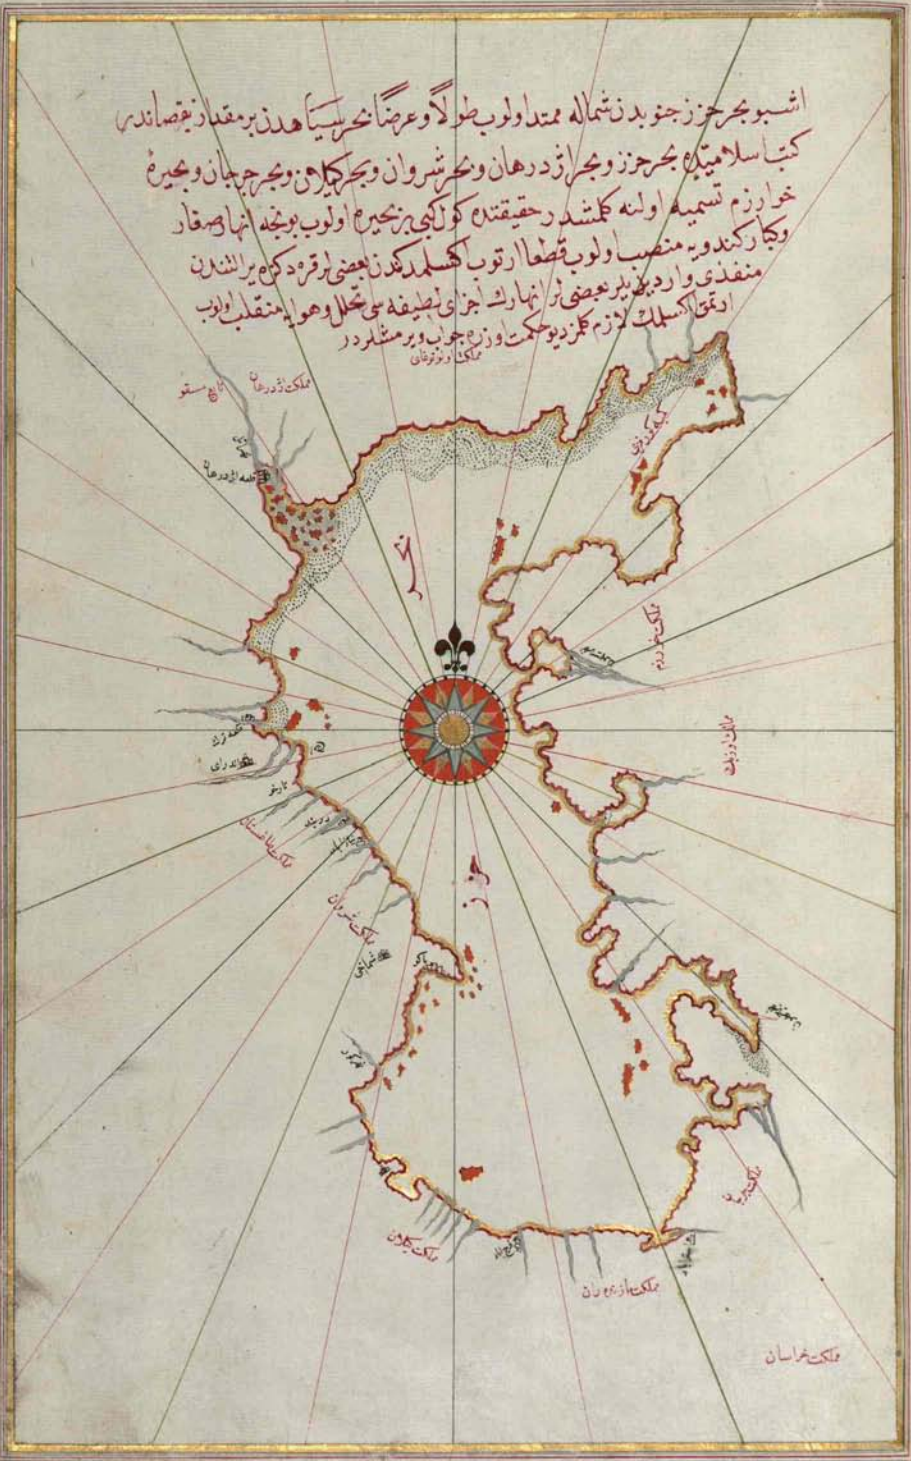 اشبو بحر خزر جنوبدن شماله ممتد اولوب طولاً و عرضًا بحر سیاهدن بر مقدار نقصاندر
كتب اسلامیته بحر خزر و بحر اژدرهان و بحر شروان و بحر كیلان و بحر جرجان و بحیرۀ
خوارزم تسمیه اولنه كلمشدر حقیقتده كول كبی بر بحیره اولوب بونجه انهار صغار
و كبار كندویه منصب اولوب قطعا ارتوب اكسلمدكندن بعضیلر قره دكزه یر التندن
منفذی واردر دیرلر بعضیلر انهارك اجزای لطیفه سی تحلل و هوایه منقلب اولوب
ارتمق اكسلمك لازم كلمز دیو حكمت اوزره جواب ویرمشلردر
مملكت اژدرهان
تابع مسقو
قلعه اژدرهان
بحر
مملكت خوارزم
مملكت اوزبك
قلعه ترك
اندرای
مملكت طاغستان
خزر
مملكت شروان
شماخی
باكو
مملكت كیلان
مملكت جرجان
مملكت مازندران
مملكت خراسان